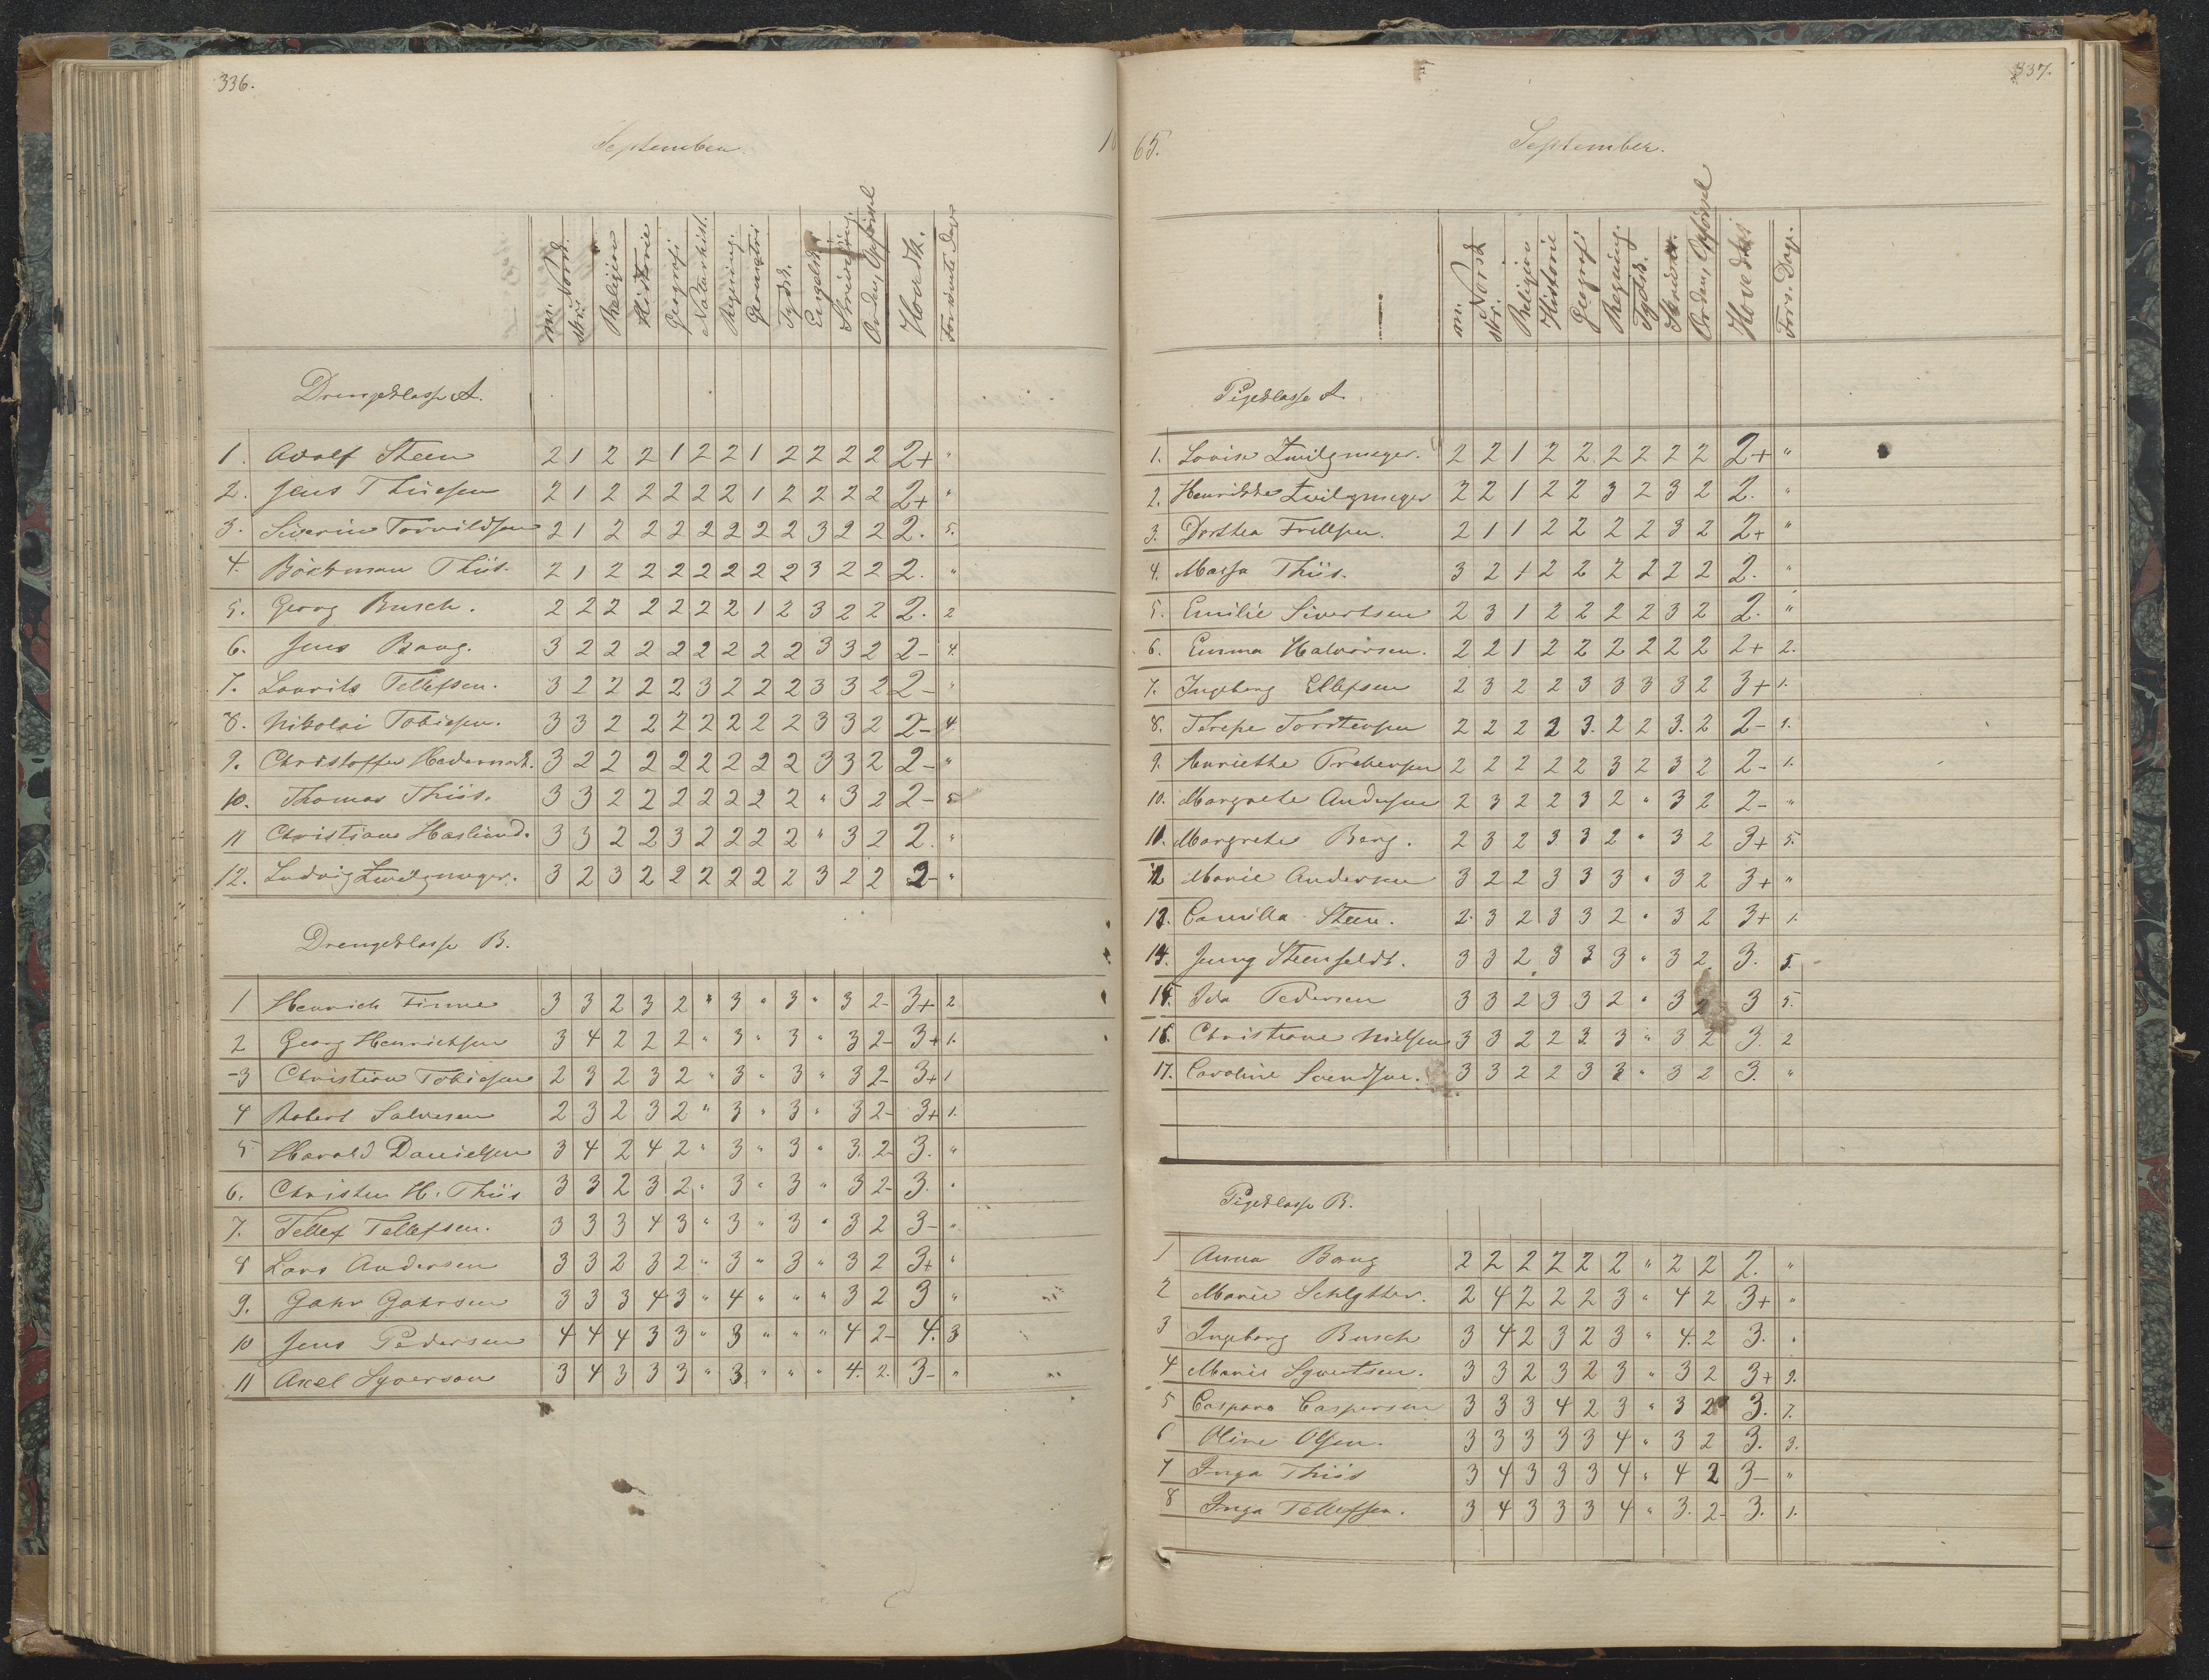 336.
September
18
mi. Norsk skr. Religion Historie Geografi Naturhist. Regning. Geometri Tydsk. Engelsk Skrivning. Orden, Opførsel Hovedk. Forsømte Dage
Drengeklasse A.
1. Adolf Steen 2 1 2 2 1 2 2 1 2 2 2 2 2+ "
2. Jens Thiesen 2 1 2 2 2 2 2 1 2 2 2 2 2+ "
3. Siverin Torvildsen 2 1 2 2 2 2 2 2 2 3 2 2 2. 5.
4. Böckman Thiis. 2 1 2 2 2 2 2 2 2 3 2 2 2. "
5. Georg Busch. 2 2 2 2 2 2 2 1 2 3 2 2 2. 2
6. Jens Bang. 3 2 2 2 2 2 2 2 2 3 3 2 2- 4.
7. Laurits Tellefsen. 3 2 2 2 2 3 2 2 2 3 3 2 2- "
8. Nikolai Tobiesen. 3 3 2 2 2 2 2 2 2 3 3 2 2- 4.
9. Christoffer Hedemark. 3 2 2 2 2 2 2 2 2 3 3 2 2- "
10. Thomas Thiis. 3 3 2 2 2 2 2 2 2 " 3 2 2- 5
11 Christian Hasliund. 3 3 2 2 3 2 2 2 2 " 3 2 2. "
12. Ludvig Zwilgmeyer. 3 2 3 2 2 2 2 2 2 3 2 2 2- "
Drengeklasse B.
1 Henrich Finne 3 3 2 3 2 " 3 " 3 " 3 2- 3+ 2
2 Georg Henrichsen 3 4 2 2 2 " 3 " 3 " 3 2- 3+ 1.
3 Christian Tobiesen 2 3 2 3 2 " 3 " 3 " 3 2- 3+ 1
4 Robert Salvesen 2 3 2 3 2 " 3 " 3 " 3 2- 3+ 1.
5 Harald Danielsen 3 4 2 4 2 " 3 " 3 " 3. 2- 3. "
6. Christen H. Thiis 3 3 2 3 2 " 3 " 3 " 3 2- 3. "
7. Tellef Tellefsen. 3 3 3 4 3 " 3 " 3 " 3 2 3- "
8 Lars Andersen 3 3 2 3 2 " 3 " 3 " 3 2 3+ "
9. Gahr Gahrsen 3 3 3 4 3 " 4 " " " 3 2 3 "
10 Jens Pedersen 4 4 4 3 3 " 3 " " " 4 2- 4. 3
11 Axel Syverson 3 4 3 3 3 " 3. " " " 4. 2. 3- "
337.
65.
September.
mi. Norsk skr. Religion Historie Geografi Regning. Tydsk. Orden, Opførsel Fors. Dag.
Pigeklasse A.
1. Lovise Zwilgmeyer. 2 2 1 2 2 2 2 2 2 2+ "
2. Henrikke Zwilgmeyer 2 2 1 2 2 3 2 3 2 2. "
3. Dorthea Frellsen. 2 1 1 2 2 2 2 3 2 2+ "
4. Massa Thiis. 3 2 1 2 2 2 2 2 2 2. "
5. Emilie Sivertsen 2 3 1 2 2 2 2 3 2 2. "
6. Emma Halvorsen. 2 2 1 2 2 2 2 2 2 2+ 2.
7. Ingeborg Ellefsen 2 3 2 2 3 3 3 3 2 3+ 1.
8. Terese Torstensen 2 2 2 2 3. 2 2 3. 2 2- 1.
9. Anriette Prebensen 2 2 2 2 2 3 2 3 2 2- 1.
10. Margrete Andersen 2 3 2 2 3 2 " 3 2 2- "
11. Margrete Berg. 2 3 2 3 3 2 " 3 2 3+ 5.
12 Marie Andersen 3 2 2 3 3 3 " 3 2 3+ "
13. Camilla Steen. 2. 3 2 3 3 2 " 3 2 3+ 1.
14. Jenny Steenfeldt. 3 3 2 3 3 3 " 3 2 3. 5.
15. Ida Pedersen 3 3 2 3 3 2 " 3 2 3 5.
16. Christiane Nielsen 3 3 2 2 3 3 " 3 2 3. 2
17. Caroline Svendsen. 3 3 2 2 3 3 " 3 2 3. "
Pigeklasse B.
1 Anna Bang 2 2 2 2 2 2 " 2 2 2. "
2 Marie Schlytter. 2 4 2 2 2 3 " 4 2 3+ "
3 Ingeborg Busch 3 4 2 3 2 3 " 4. 2 3. "
4 Marie Syvertsen. 3 3 2 3 2 3 " 3 2 3+ 9.
5 Caspara Caspersen 3 3 3 4 2 3 " 3 2 3. 7.
6 Oline Olsen. 3 3 3 3 3 4 " 3 2 3. 3.
7 Inga Thiis 3 4 3 3 3 4 " 4 2 3- "
8 Inga Tellefsen. 3 4 3 3 3 4 " 3. 2- 3. 1.